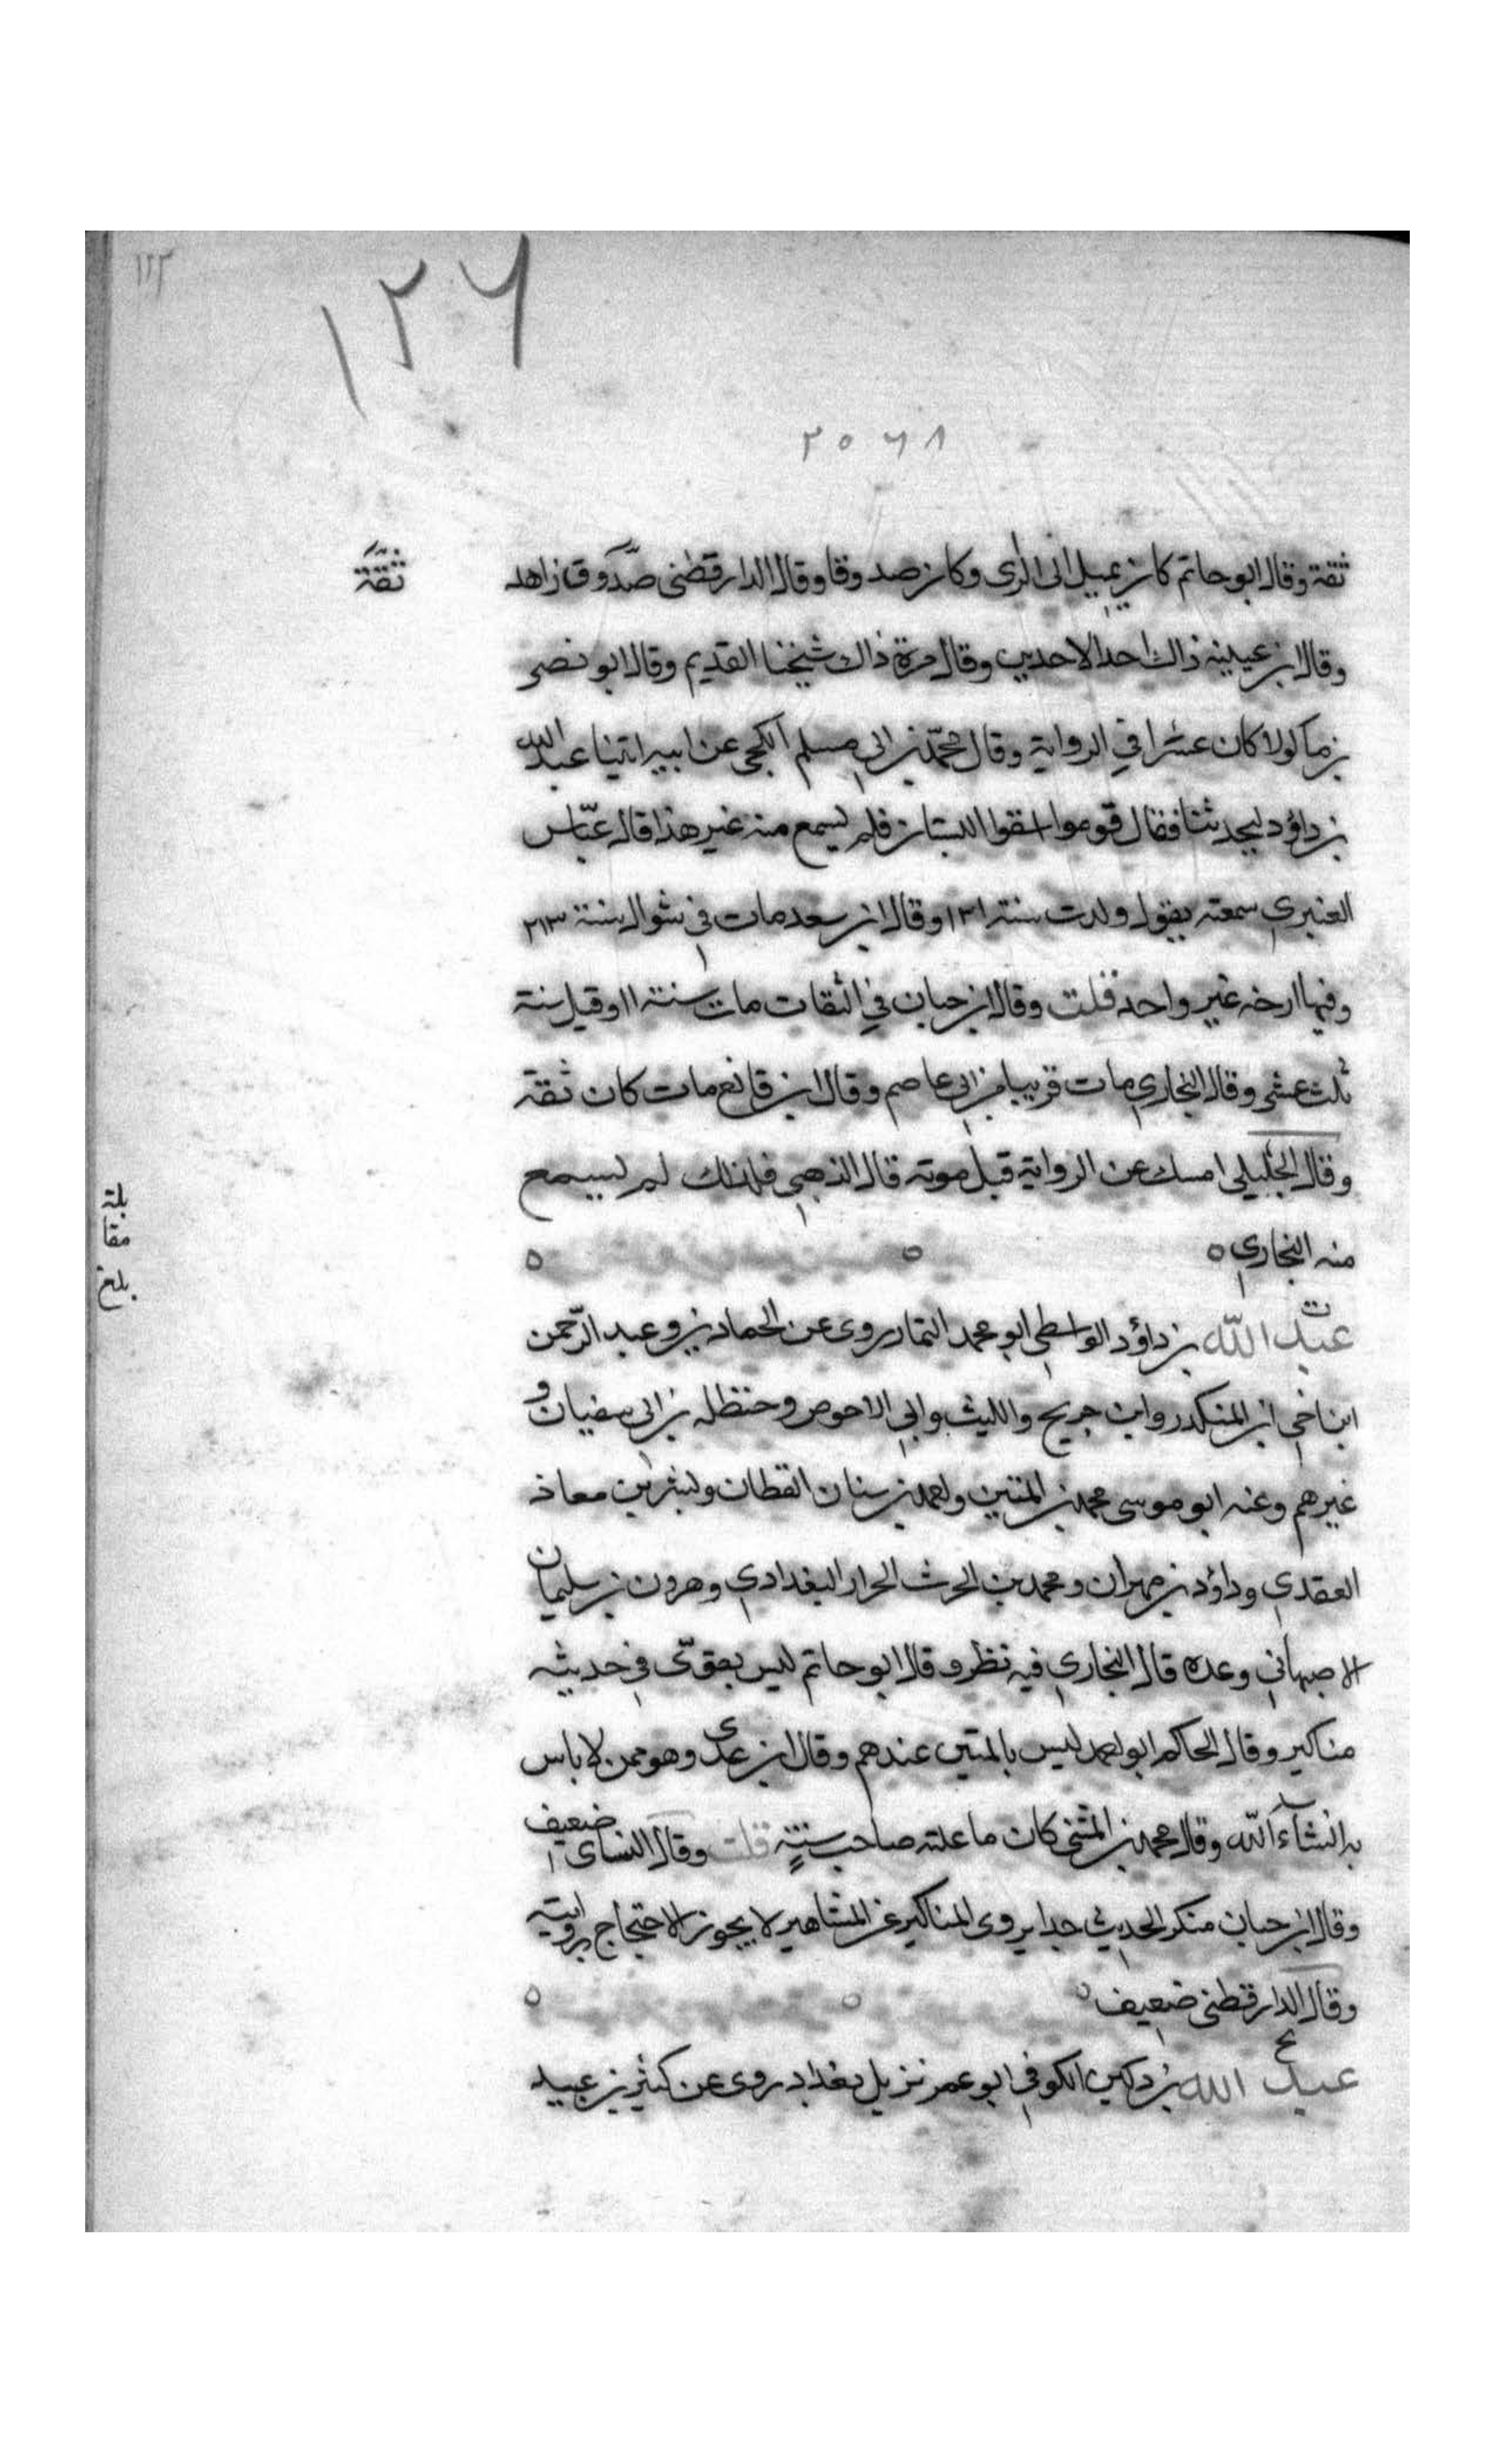 ١٢٢
١٢٦
٢٥٦٨
ثقة وقال ابو حاتم كان يميل الى الرى وكان صدوقا وقال الدارقطنى صدوق زاهد
ثقة
وقال ابن عيينه ذاك احد الاحدين وقال مرة ذاك شيخنا القديم وقال ابو نصر
بن ماكولا كان عسرا في الرواية وقال محمد بن ابى مسلم الكجى عن ابيه اتينا عبد الله
بن داؤد ليحدثنا فقال قوموا اسقوا البستان فلم يسمع منه غير هذا قال عباس
العنبري سمعته يقول ولدت سنة ١٢١ وقال ابن سعد مات في شوال سنة ٢١٣
وفيها ارخه غير واحد قلت وقال ابن حبان في الثقات مات سنة ١١ وقيل سنة
ثلث عشر وقال البخاري مات قريبا من ابى عاصم وقال ابن قانع مات كان ثقة
وقال الخليلى امسك عن الرواية قبل موته قال الذهبي فلذلك لم يسمع
منه البخاري ٥ ٥ ٥
بلغ مقابلة
ت
عبد الله بن داؤد الواسطي ابو محمد التمار روى عن الحمادين وعبد الرحمن
ابن اخي ابن المنكدر وابن جريج والليث وابي الاحوص وحنظله بن ابى سفيان و
غيرهم وعنه ابو موسى محمد بن المثنى واحمد بن سنان القطان وبشر بن معاذ
العقدي وداؤد بن مهران ومحمد بن الحرث الحرار البغدادي وهرون بن سليمان
الاصبهاني وعده قال البخاري فيه نظر وقال ابو حاتم ليس بقوى في حديثه
مناكير وقال الحاكم ابو احمد ليس بالمتين عندهم وقال ابن عدى وهو ممن لا باس
به انشآء الله وقال محمد بن المثنى كان ما علمته صاحب سنة قلت وقال النساى ضعيف
وقال ابن حبان منكر الحديث جدا يروى المناكير عن المشاهير لا يجوز الاحتجاج بروايته
وقال الدارقطنى ضعيف ٥ ٥ ٥
ع
عبد الله بن دكين الكوفي ابو عمر نزيل بغداد روى عن كثير بن عبيد